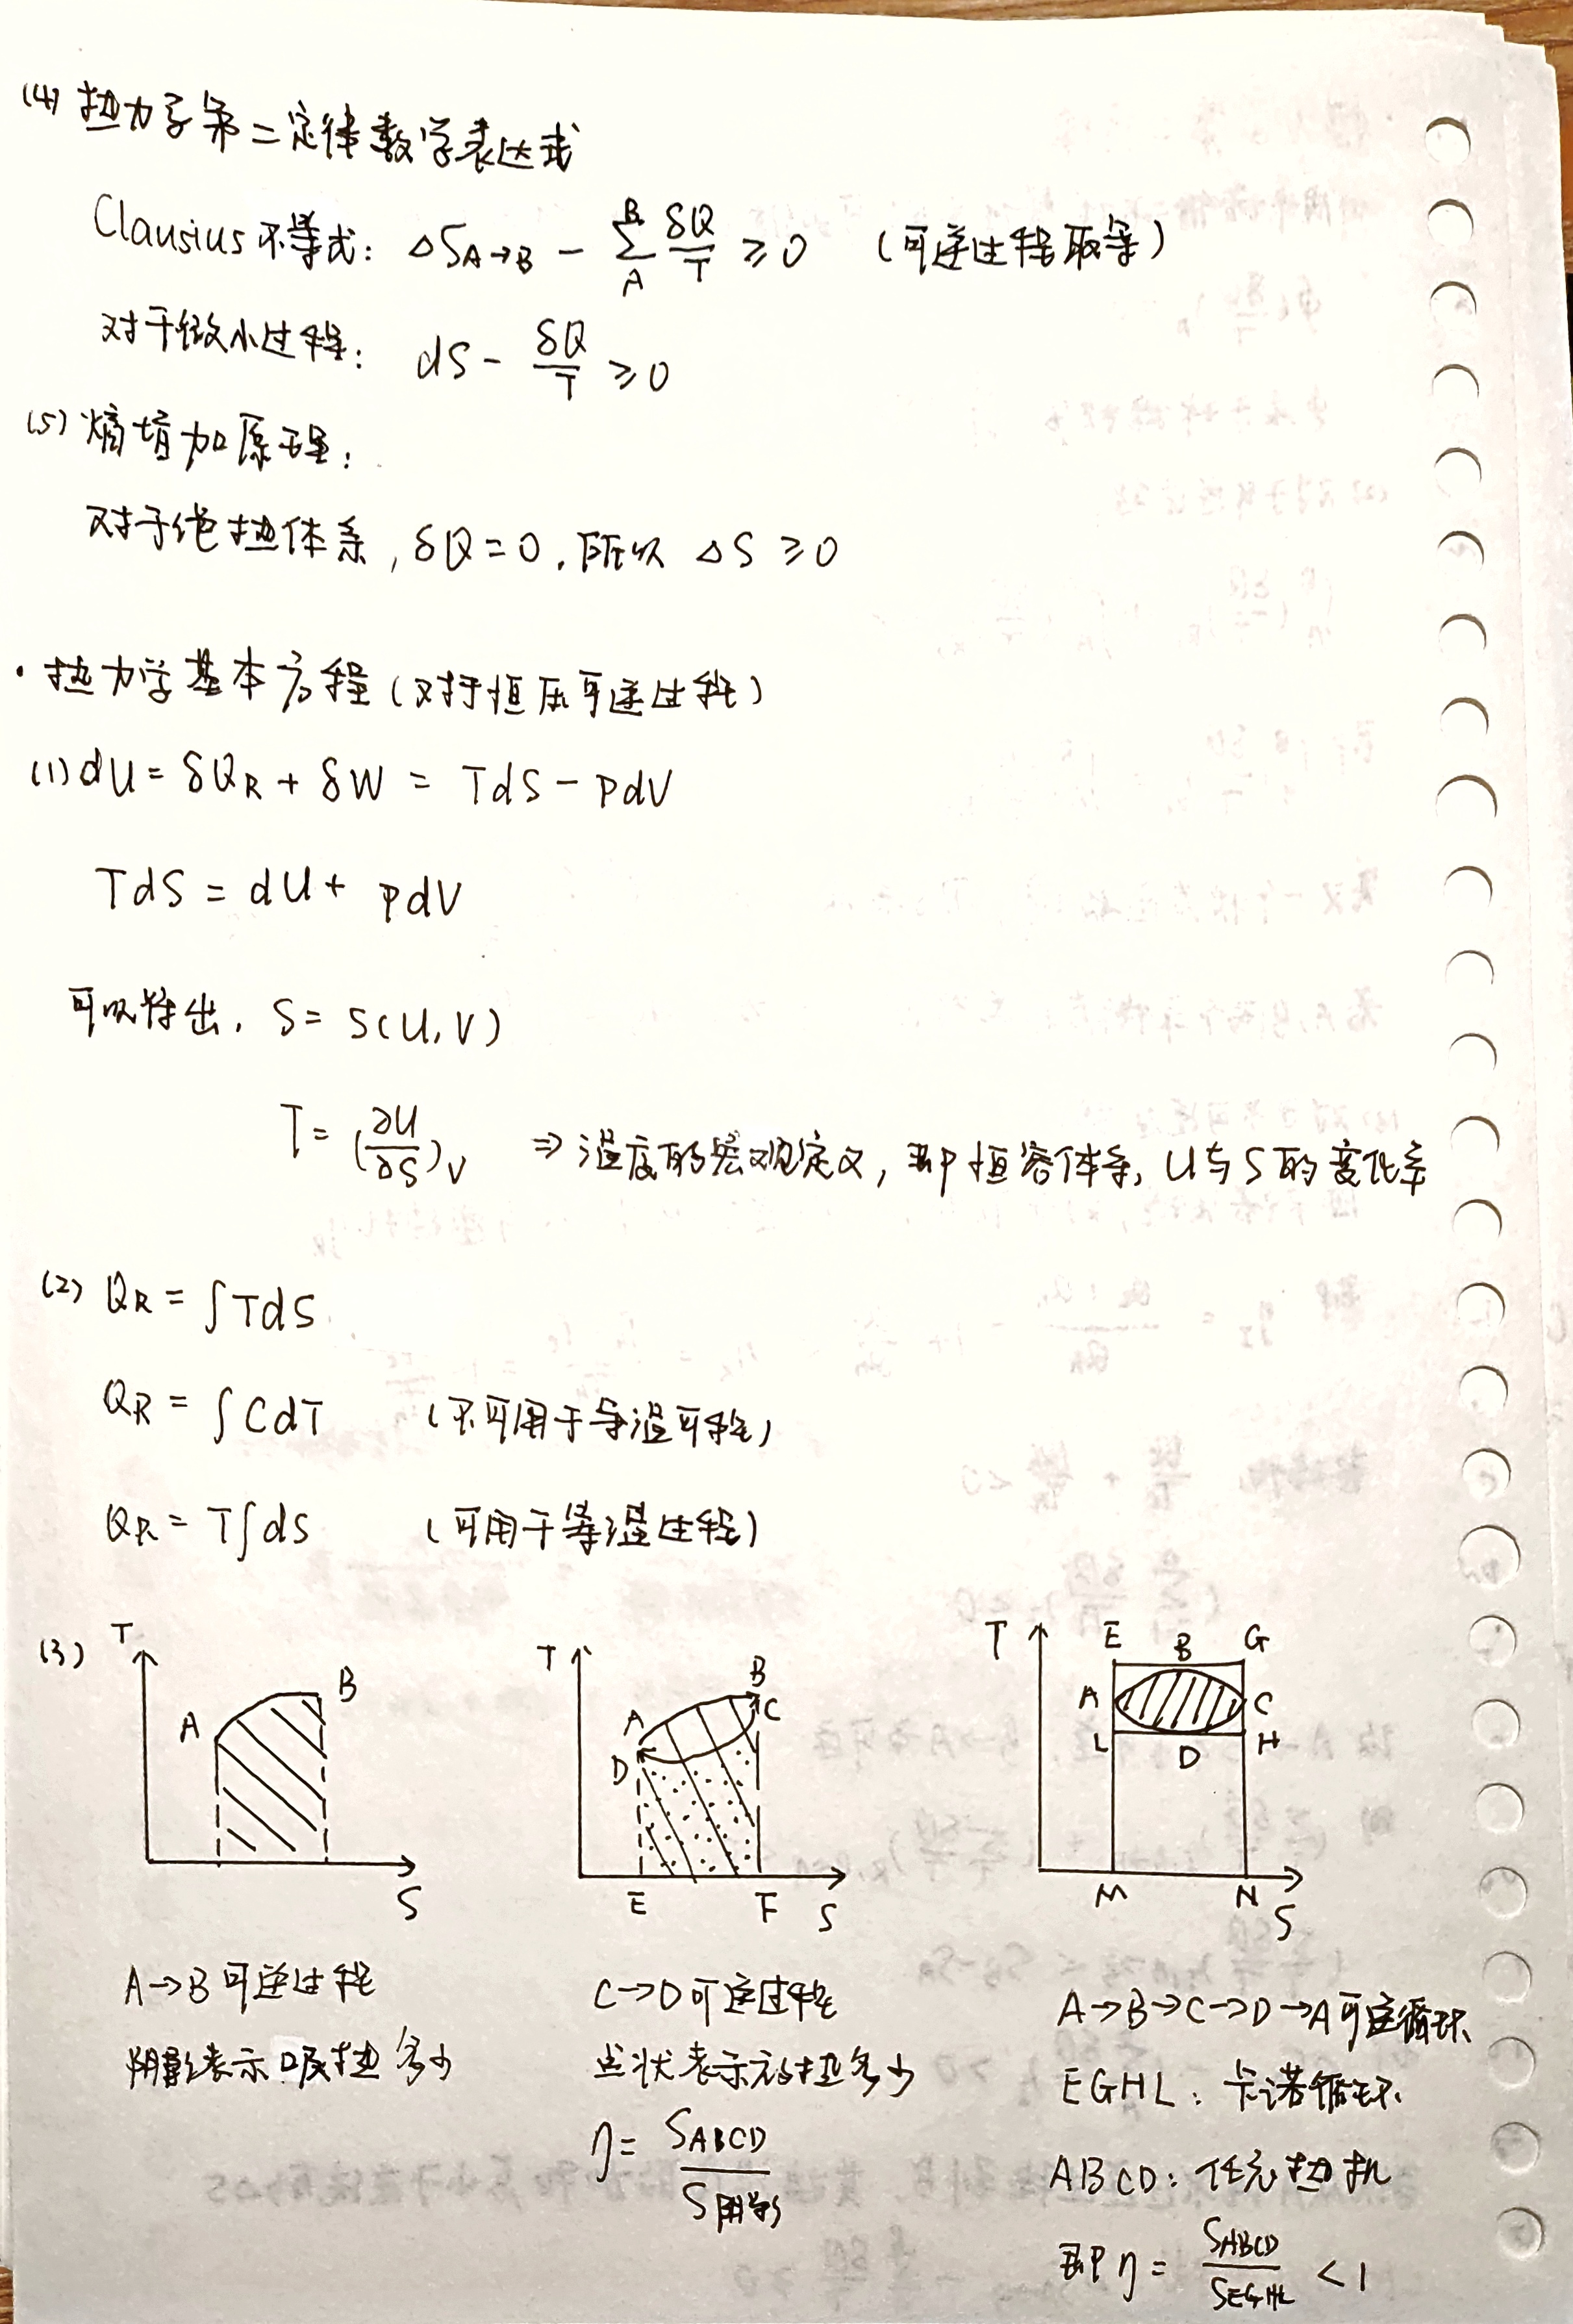 (4) 热力学第二定律数学表达式
Clausius 不等式: ΔS_{A→B} - \sum_A^B \frac{δQ}{T} ≥ 0 (可逆过程取等)
对于微小过程: dS - \frac{δQ}{T} ≥ 0
(5) 熵增加原理:
对于绝热体系, δQ = 0, 所以 ΔS ≥ 0
· 热力学基本方程 (对于恒压可逆过程)
(1) dU = δQ_R + δW = TdS - PdV
TdS = dU + PdV
可以得出, S = S(U, V)
T = (\frac{∂U}{∂S})_V ⇒ 温度的宏观定义, 即恒容体系, U与S的变化率
(2) Q_R = ∫TdS
Q_R = ∫CdT (不可用于等温可程)
Q_R = T∫dS (可用于等温过程)
(3) T A B S
T A B C D E F S
T E B G A C L D H M N S
A→B 可逆过程
阴影表示吸热多少
C→D 可逆过程
点状表示放热多少
η = \frac{S_{ABCD}}{S_{阴影}}
A→B→C→D→A 可逆循环
EGHL: 卡诺循环
ABCD: 任意热机
即 η = \frac{S_{ABCD}}{S_{EGHL}} < 1